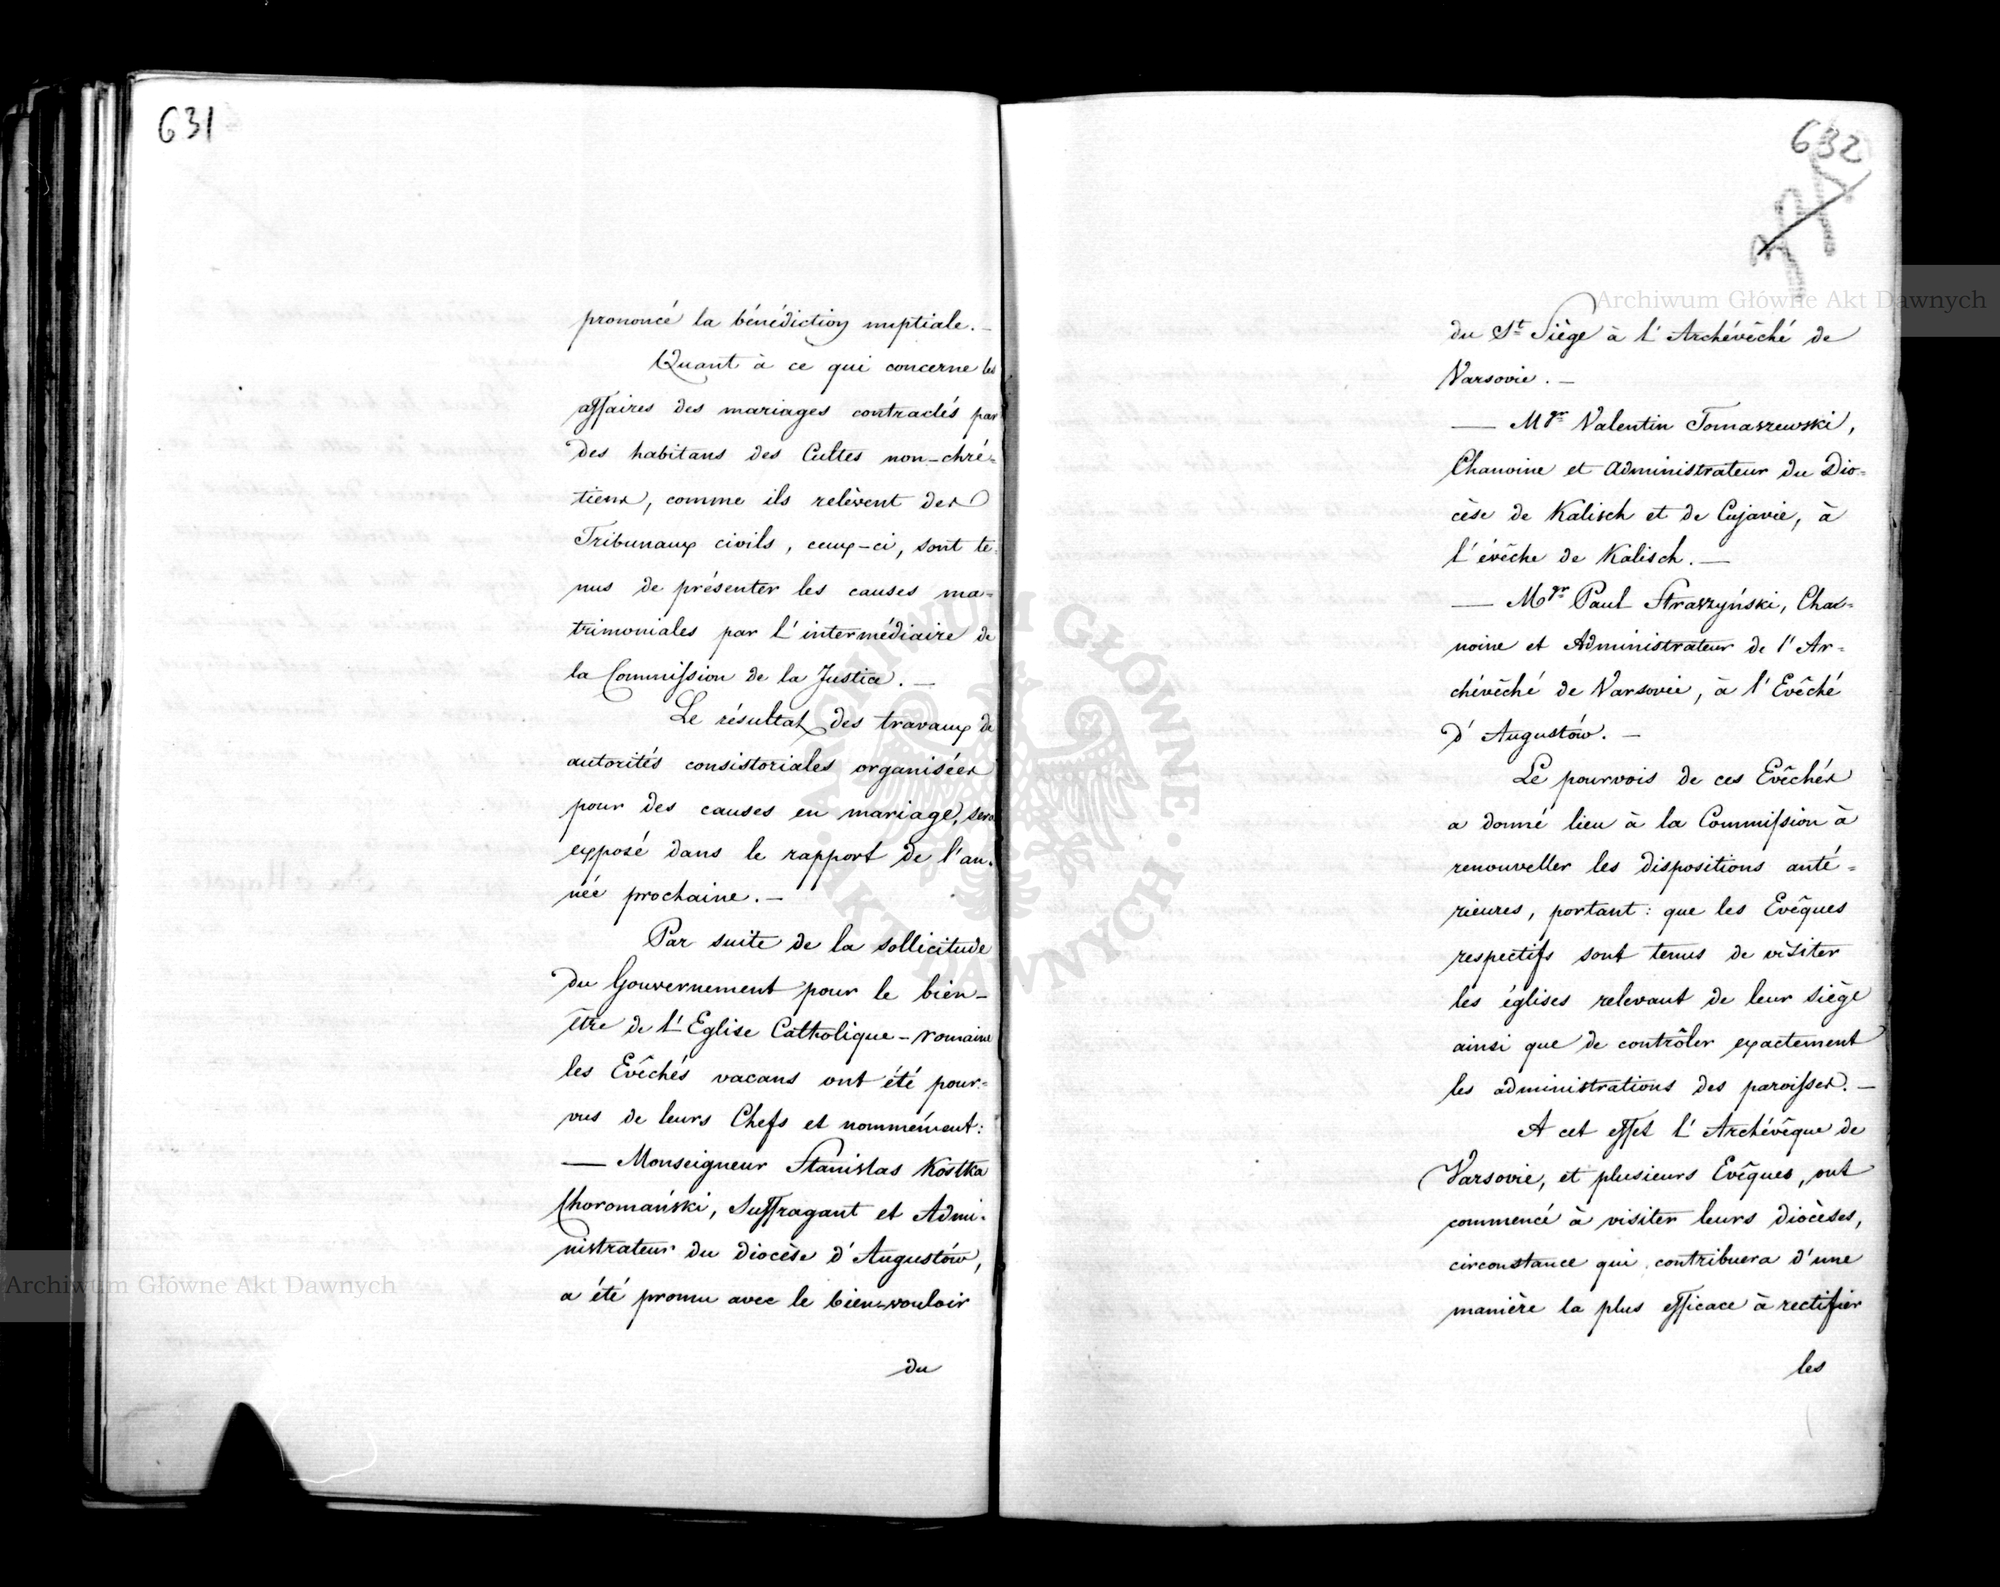 631
prononcé la bénédiction nuptiale. —
Quant à ce qui concerne les
affaires des mariages contractés par
des habitans des Cultes non-chré=
tiens, comme ils relèvent des
Tribunaux civils, ceux-ci, sont te=
nus de présenter les causes ma=
trimoniales par l'intermédiaire de
la Commission de la Justice. —
Le résultat des travaux de
autorités consistoriales organisées
pour des causes en mariage, sera
exposé dans le rapport de l'an=
née prochaine. —
Par suite de la sollicitude
du Gouvernement pour le bien-
être de l'Eglise Catholique-romaine
les Evêchés vacans ont été pour=
vus de leurs Chefs et nommément:
— Monseigneur Stanislas Kostka
Choromański, Suffragant et Admi=
nistrateur du diocèse d'Augustów,
a été promu avec le bien-vouloir
du
632
du St Siège à l'Archévêché de
Varsovie. —
— Mgr Valentin Tomaszewski,
Chanoine et Administrateur du Dio=
cèse de Kalisch et de Cujavie, à
l'évêche de Kalisch. —
— Mgr Paul Straszyński, Cha=
noine et Administrateur de l'Ar=
chévêché de Varsovie, à l'Evêché
d'Augustów. —
Le pourvois de ces Evêchés
a donné lieu à la Commission à
renouveller les dispositions anté=
rieures, portant: que les Evêques
respectifs sont tenus de visiter
les églises relevant de leur siège
ainsi que de contrôler exactement
les administrations des paroisses. —
A cet effet l'Archévêque de
Varsovie, et plusieurs Evêques, ont
commencé à visiter leurs diocèses,
circonstance qui contribuera d'une
manière la plus efficace à rectifier
les
Archiwum Główne Akt Dawnych
Archiwum Główne Akt Dawnych
ARCHIWUM GŁÓWNE · AKT DAWNYCH ·